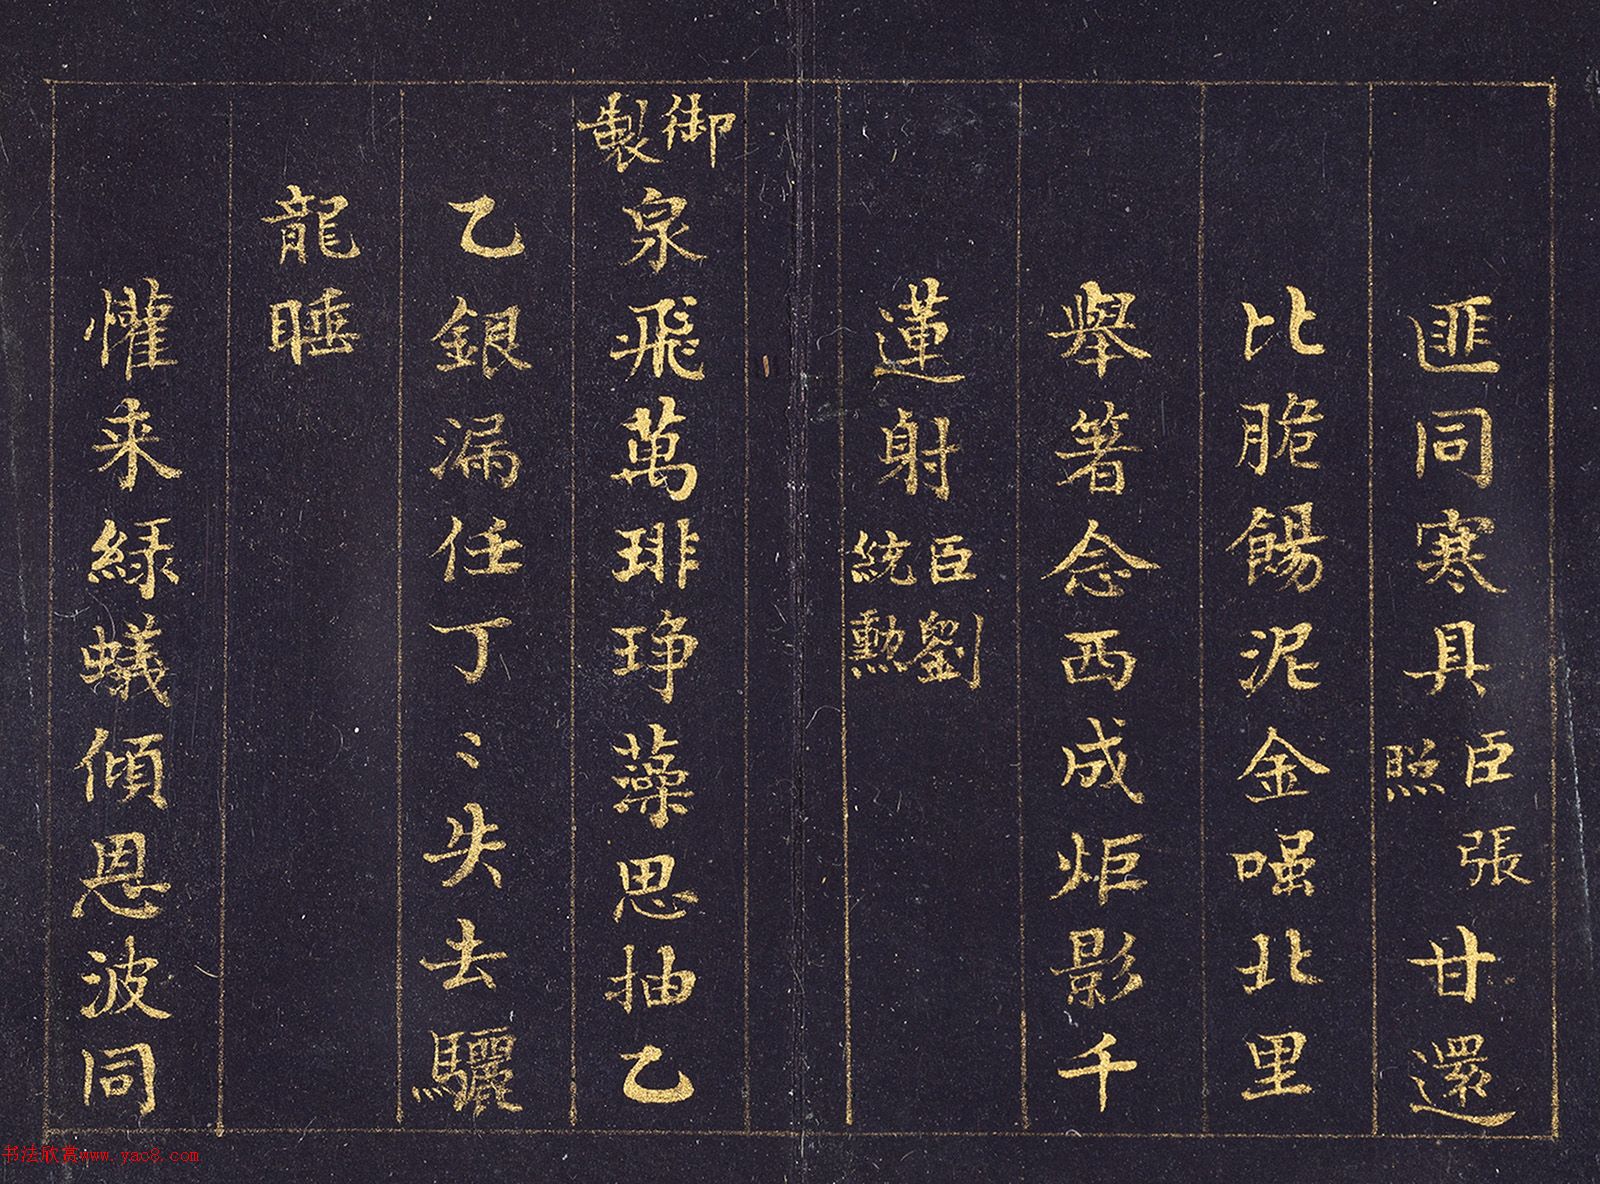 匪同寒具臣張照甘還
比脆餳泥金嗤北里
舉箸念西成炬影千
蓮射臣劉統勳
御製泉飛萬琲琤藻思抽乙
乙銀漏任丁〻失去驪
龍睡
懽来綠蟻傾恩波同
书法欣赏www.yac8.com